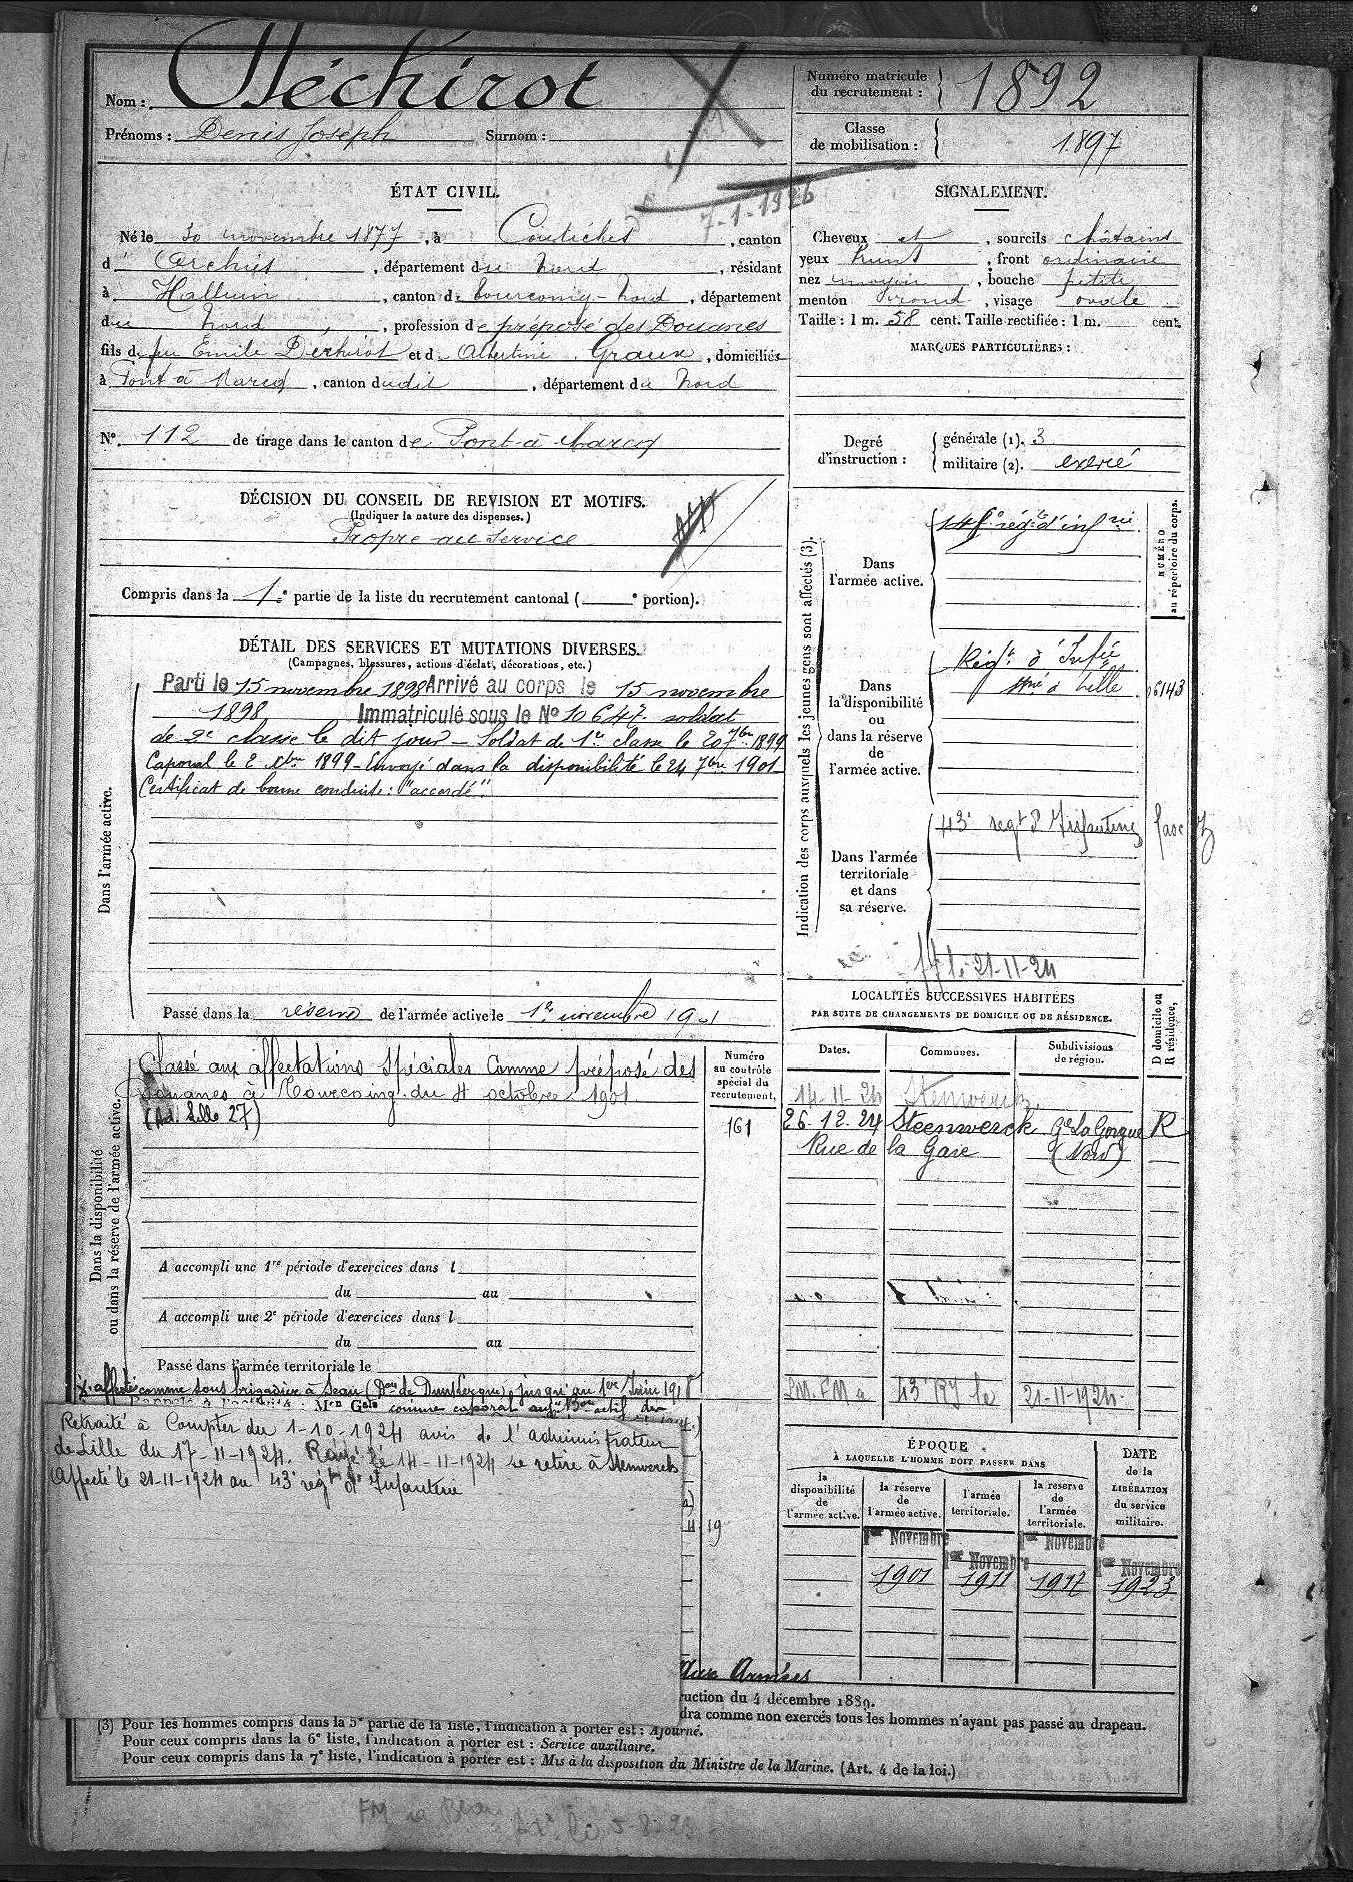 Nom : Déchirot
Prénoms : Denis Joseph Surnom :
Numéro matricule du recrutement : 1892
Classe de mobilisation : 1897
7-1-1926
ÉTAT CIVIL.
Né le 30 novembre 1877, à Coutiches, canton
d'Orchies, département du Nord, résidant
à Halluin, canton de Tourcoing-Nord, département
du Nord, profession de préposé des Douanes
fils de feu Emile Déchirot et d Albertine Graux, domiciliés
à Pont à Marcq, canton dudit, département du Nord
N° 112 de tirage dans le canton de Pont-à-Marcq
SIGNALEMENT.
Cheveux et, sourcils châtains
yeux bruns, front ordinaire
nez moyen, bouche petite
menton rond, visage ovale
Taille : 1 m. 58 cent. Taille rectifiée : 1 m. cent.
MARQUES PARTICULIÈRES :
Degré d'instruction : générale (1). 3
militaire (2). exercé
DÉCISION DU CONSEIL DE REVISION ET MOTIFS.
(Indiquer la nature des dispenses.)
Propre au service
Compris dans la 1e partie de la liste du recrutement cantonal ( e portion).
DÉTAIL DES SERVICES ET MUTATIONS DIVERSES.
(Campagnes, blessures, actions d'éclat, décorations, etc.)
Dans l'armée active.
Parti le 15 novembre 1898 Arrivé au corps le 15 novembre
1898 Immatriculé sous le No 10647 soldat
de 2e classe le dit jour - Soldat de 1re classe le 20 7bre 1899
Caporal le 2 xbre 1899 - Envoyé dans la disponibilité le 24 7bre 1901
Certificat de bonne conduite : "accordé".
Passé dans la réserve de l'armée active le 1er novembre 1901
Indication des corps auxquels les jeunes gens sont affectés (3).
NUMÉRO au répertoire du corps.
Dans l'armée active.
régt d'infrie
Dans la disponibilité ou dans la réserve de l'armée active.
Régt d'Infie
Lille
Dans l'armée territoriale et dans sa réserve.
43e regt d'Infanterie
le 21-11-24
Dans la disponibilité ou dans la réserve de l'armée active.
Classé aux affectations spéciales comme préposé des
Douanes à Tourcoing du 4 octobre 1901
(Ad. Lille 27)
Numéro au contrôle spécial du recrutement,
161
A accompli une 1re période d'exercices dans l
du au
A accompli une 2e période d'exercices dans l
du au
Passé dans l'armée territoriale le
affecté comme sous brigadier à (Don de Dunkerque) jusqu'au 1er Juin 1918
comme caporal
Retraité à Compter du 1-10-1924 avis de l'administrateur
de Lille du 17-11-1924. Rayé le 14-11-1924 se retire à Steenwerck
Affecté le 21-11-1924 au 43e régt d'Infanterie
19
LOCALITÉS SUCCESSIVES HABITÉES
PAR SUITE DE CHANGEMENTS DE DOMICILE OU DE RÉSIDENCE.
D domicile ou R résidence,
Dates. Communes. Subdivisions de région.
14-11-24 Stenwerck
26-12-24 Steenwerck Qr La Gorgue R
Rue de la Gare (Nord)
43 RI le 21-11-1924
ÉPOQUE
À LAQUELLE L'HOMME DOIT PASSER DANS
la disponibilité de l'armée active.
la réserve de l'armée active.
l'armée territoriale.
la réserve de l'armée territoriale.
DATE de la LIBÉRATION du service militaire.
1er Novembre 1er Novembre 1er Novembre 1er Novembre
1901 1911 1917 1923
Aux Armées
ruction du 4 décembre 1889.
dra comme non exercés tous les hommes n'ayant pas passé au drapeau.
(3) Pour les hommes compris dans la 5e partie de la liste, l'indication à porter est : Ajourné.
Pour ceux compris dans la 6e liste, l'indication à porter est : Service auxiliaire.
Pour ceux compris dans la 7e liste, l'indication à porter est : Mis à la disposition du Ministre de la Marine. (Art. 4 de la loi.)